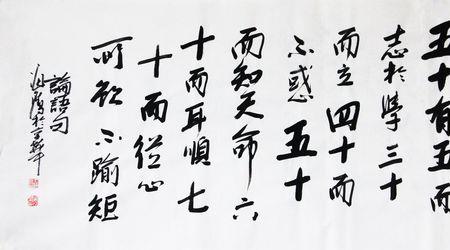 五十有五而
志於學三十
而立四十而
不惑五十
而知天命六
十而耳順七
十而從心
所欲不踰矩
論語句